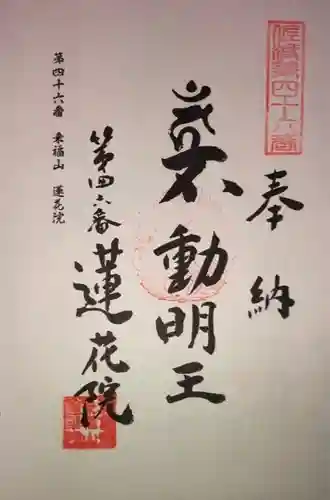 第四十六番
奉納
不動明王
第四六番 蓮花院
第四十六番 来福山 蓮花院